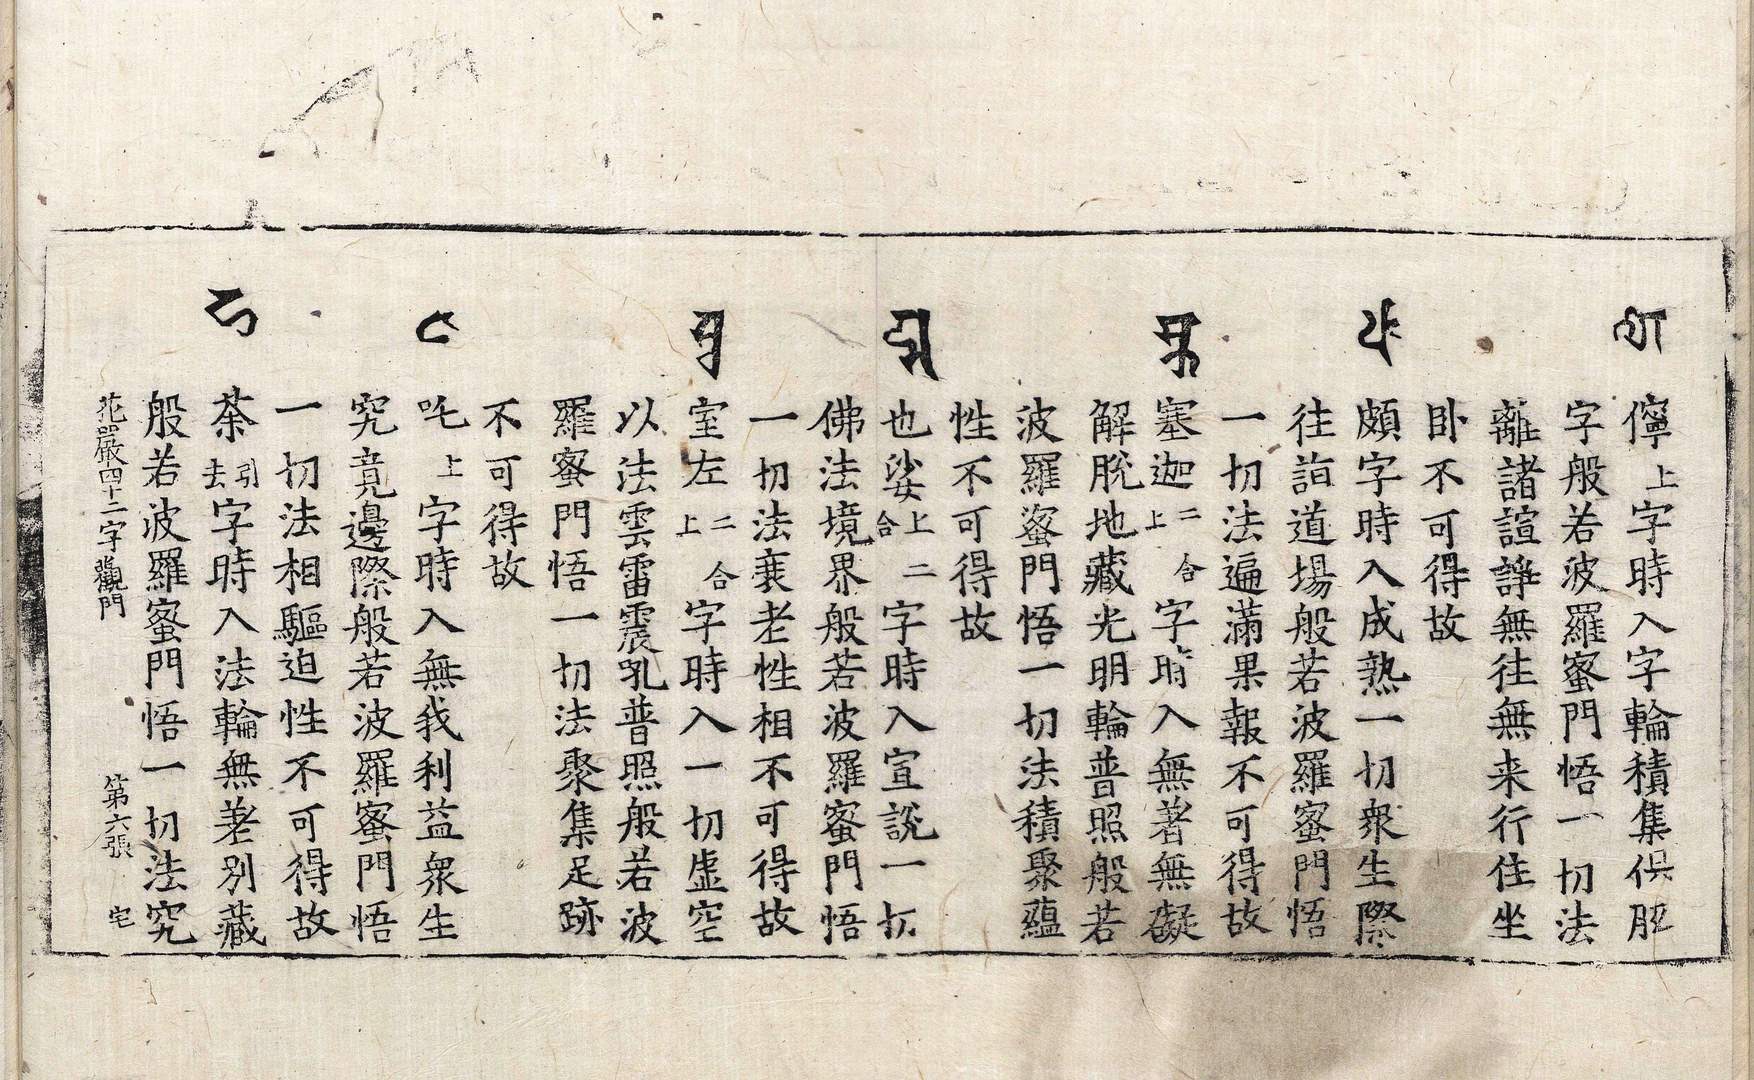 𑖜
儜上字時入字輪積集俱胝
字般若波羅蜜門悟一切法
離諸諠諍無往無来行住坐
卧不可得故
𑖣
頗字時入成熟一切衆生際
往詣道場般若波羅蜜門悟
一切法遍滿果報不可得故
𑖭𑖿𑖎
塞迦二合上字時入無著無礙
解脫地藏光明輪普照般若
波羅蜜門悟一切法積聚蘊
性不可得故
𑖧𑖿𑖭
也娑上二合字時入宣說一切
佛法境界般若波羅蜜門悟
一切法衰老性相不可得故
𑖫𑖿𑖓
室左二合上字時入一切虛空
以法雲雷震吼普照般若波
羅蜜門悟一切法聚集足跡
不可得故
𑖘
吒上字時入無我利益衆生
究竟邊際般若波羅蜜門悟
一切法相驅迫性不可得故
𑖛
荼引去字時入法輪無差別藏
般若波羅蜜門悟一切法究
花嚴四十二字觀門 第六張 宅